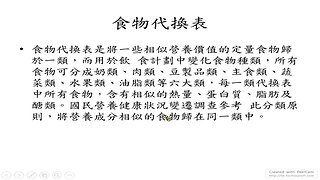 食物代換表
• 食物代換表是將一些相似營養價值的定量食物歸
於一類，而用於飲 食計劃中變化食物種類，所有
食物可分成奶類、肉類、豆製品類、主食類、蔬
菜類、水果類、油脂類等六大類，每一類代換表
中所有食物，含有相似的熱量、蛋白質、脂肪及
醣類。國民營養健康狀況變遷調查參考 此分類原
則，將營養成分相似的食物歸在同一類中。